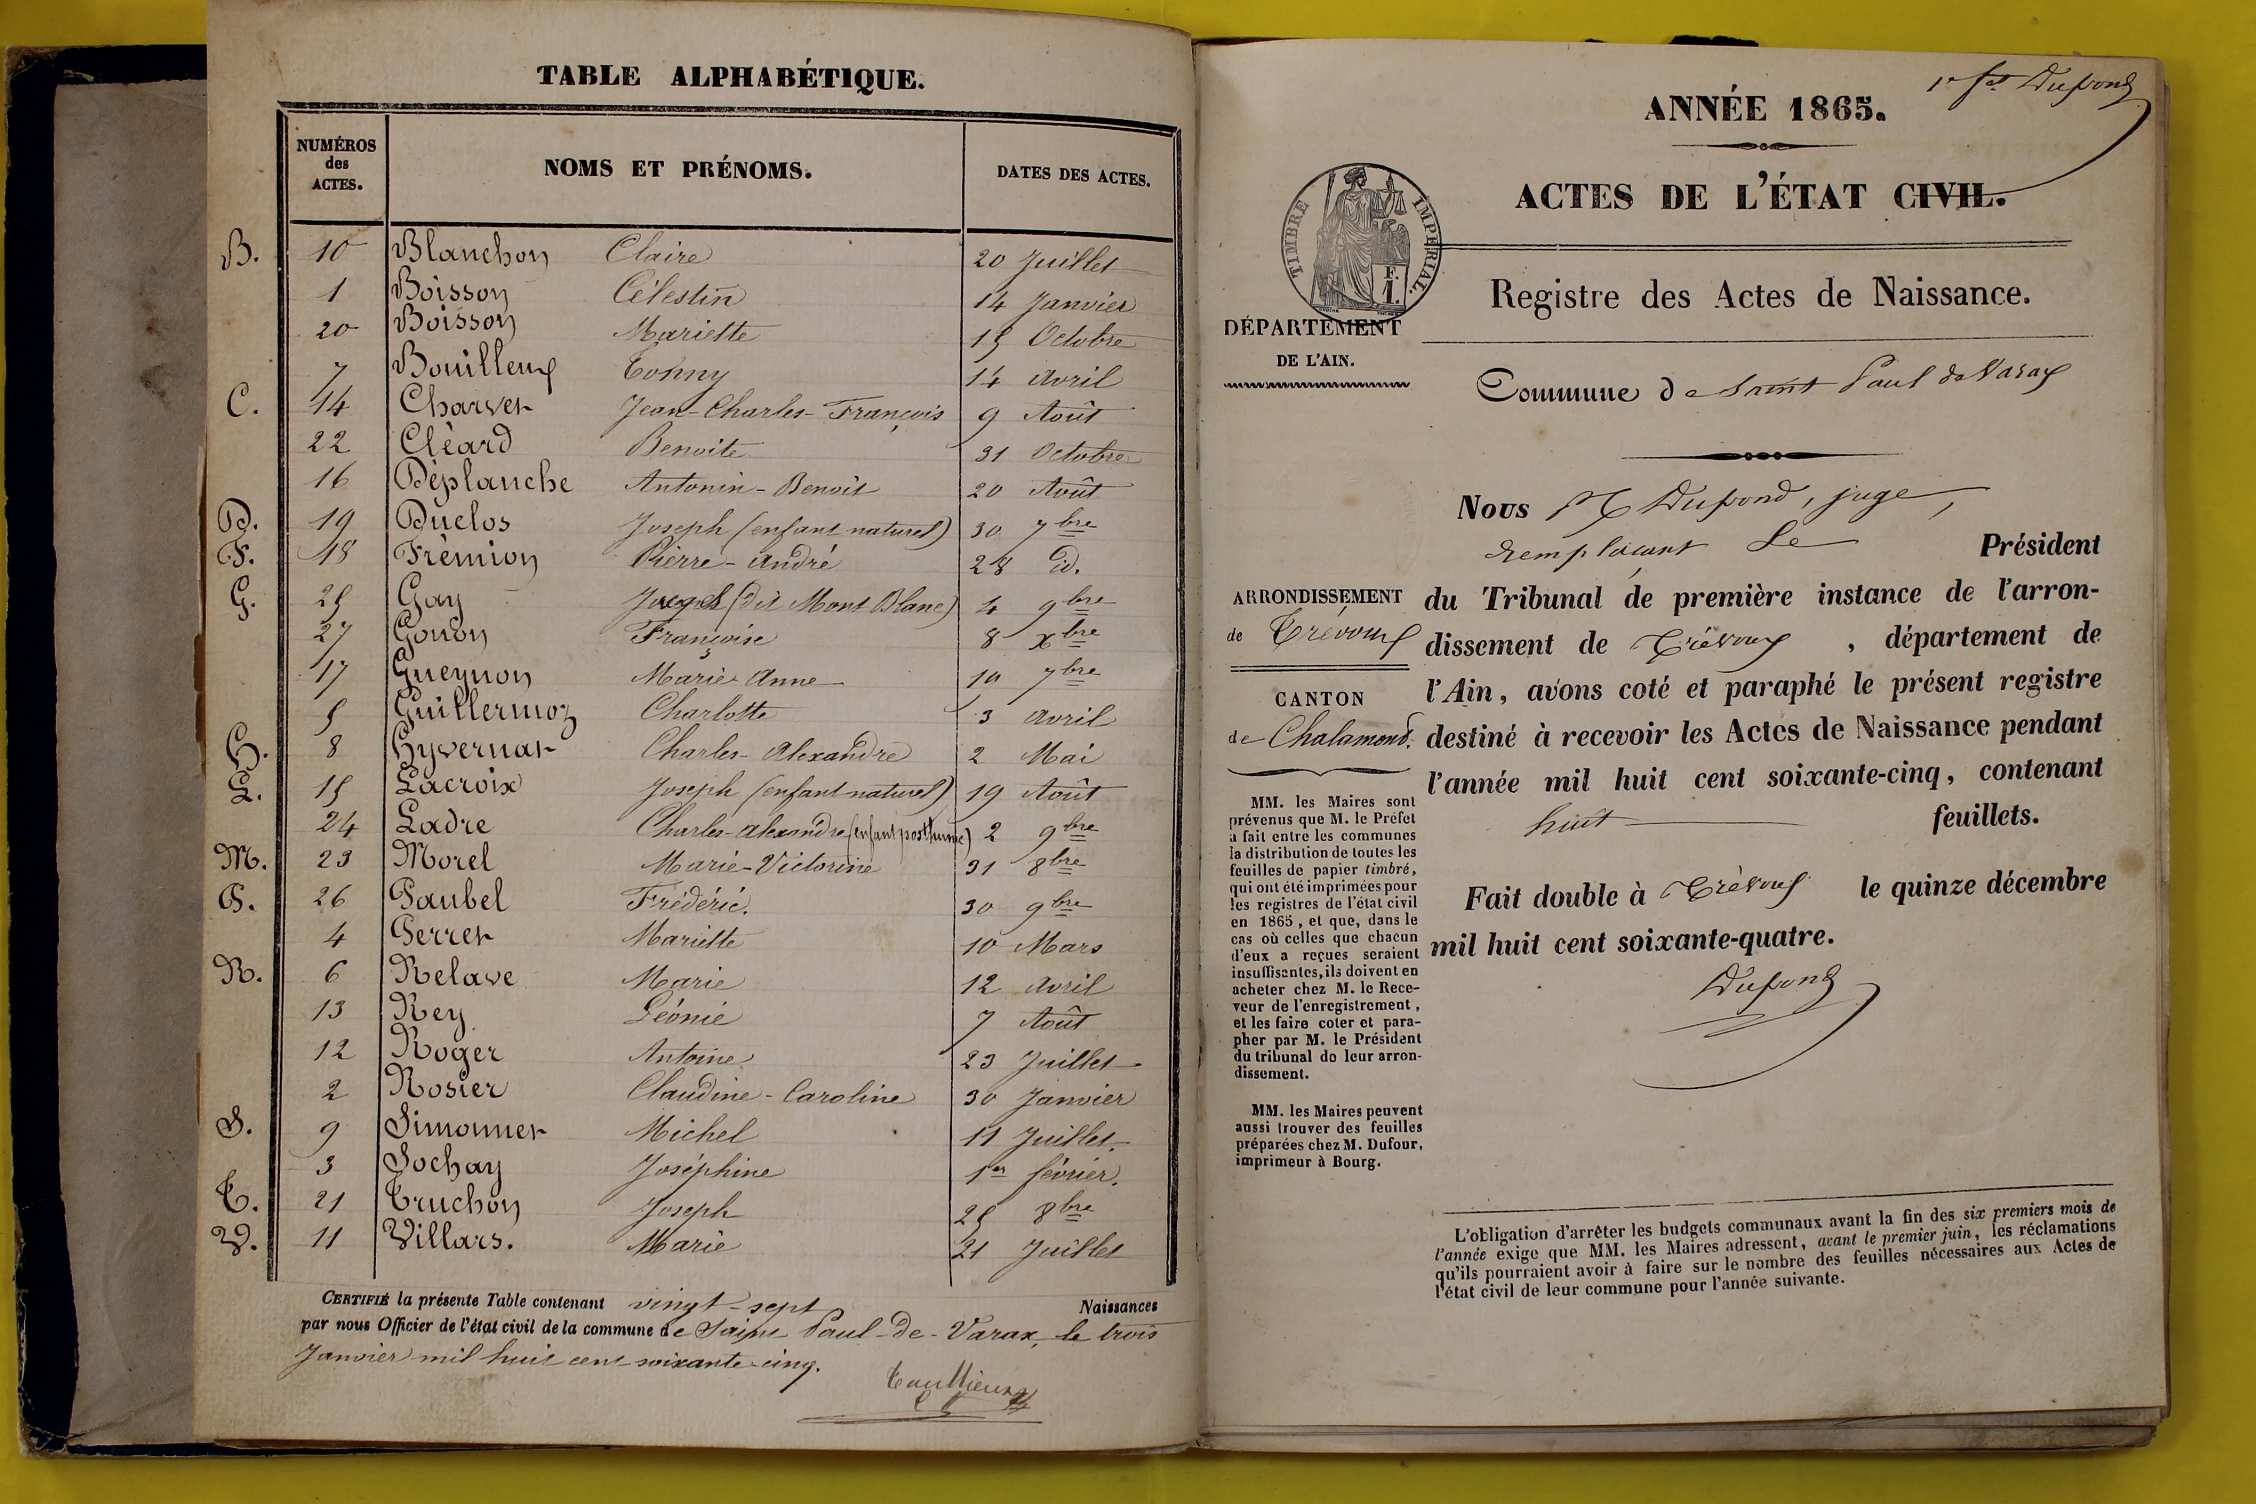 TABLE ALPHABÉTIQUE.
NUMÉROS des ACTES. NOMS ET PRÉNOMS. DATES DES ACTES.
B. 10 Blanchon Claire 20 Juillet
1 Boisson Célestin 14 Janvier
20 Boisson Mariette 15 Octobre
7 Bouilleux Tonny 14 Avril
C. 14 Charvet Jean-Charles-François 9 Août
22 Cléard Benoite 31 Octobre
16 Déplanche Antonin-Benoit 20 Août
D. 19 Duclos Joseph (enfant naturel) 30 7bre
F. 18 Frémion Pierre-André 28 id.
G. 25 Gay (dit Mont Blanc) 4 9bre
27 Gonon Françoise 8 xbre
17 Gueynon Marie Anne 10 7bre
5 Guillermoz Charlotte 3 Avril
H. 8 Hyvernat Charles-Alexandre 2 Mai
L. 15 Lacroix Joseph (enfant naturel) 19 Août
24 Ladre Charles-Alexandre (enfant posthume) 2 9bre
M. 23 Morel Marie-Victorine 31 8bre
P. 26 Paubel Frédéric. 30 9bre
4 Perret Mariette 10 Mars
R. 6 Relave Marie 12 Avril
13 Rey Léonie 7 Août
12 Roger Antoine 23 Juillet
2 Rosier Claudine-Caroline 30 Janvier
S. 9 Simonnet Michel 11 Juillet
3 Sochay Joséphine 1er février.
T. 21 Truchon Joseph 25 8bre
V. 11 Villars. Marie 21 Juillet
CERTIFIÉ la présente Table contenant vingt-sept Naissances
par nous Officier de l'état civil de la commune de Saint Paul-de-Varax, le trois
Janvier mil huit cent soixante-cinq.
1er fet Dupond
ANNÉE 1865.
ACTES DE L'ÉTAT CIVIL.
TIMBRE IMPÉRIAL.
Registre des Actes de Naissance.
DÉPARTEMENT
DE L'AIN.
Commune de Saint Paul de Varax
Nous Dupond, juge,
remplaçant Le Président
du Tribunal de première instance de l'arron-
dissement de Trévoux , département de
l'Ain, avons coté et paraphé le présent registre
destiné à recevoir les Actes de Naissance pendant
l'année mil huit cent soixante-cinq, contenant
huit feuillets.
Fait double à Trévoux le quinze décembre
mil huit cent soixante-quatre.
Dupond
ARRONDISSEMENT
de Trévoux
CANTON
de Chalamont.
MM. les Maires sont
prévenus que M. le Préfet
a fait entre les communes
la distribution de toutes les
feuilles de papier timbré,
qui ont été imprimées pour
les registres de l'état civil
en 1865, et que, dans le
cas où celles que chacun
d'eux a reçues seraient
insuffisantes, ils doivent en
acheter chez M. le Rece-
veur de l'enregistrement,
et les faire coter et para-
pher par M. le Président
du tribunal de leur arron-
dissement.
MM. les Maires peuvent
aussi trouver des feuilles
préparées chez M. Dufour,
imprimeur à Bourg.
L'obligation d'arrêter les budgets communaux avant la fin des six premiers mois de
l'année exige que MM. les Maires adressent, avant le premier juin, les réclamations
qu'ils pourraient avoir à faire sur le nombre des feuilles nécessaires aux Actes de
l'état civil de leur commune pour l'année suivante.